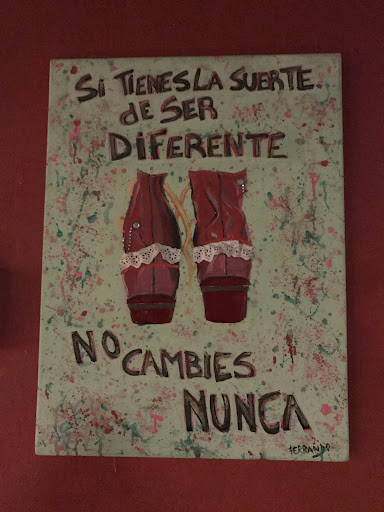 Si TIENES LA SUERTE
de SER
DiFERENTE
NO
CAMBIES
NUNCA
FERRANDO